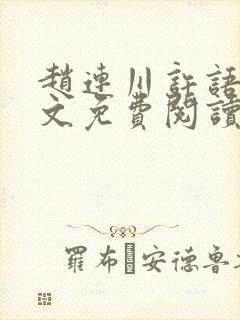 趙連川許語
文免費閱讀
羅布�安德魯